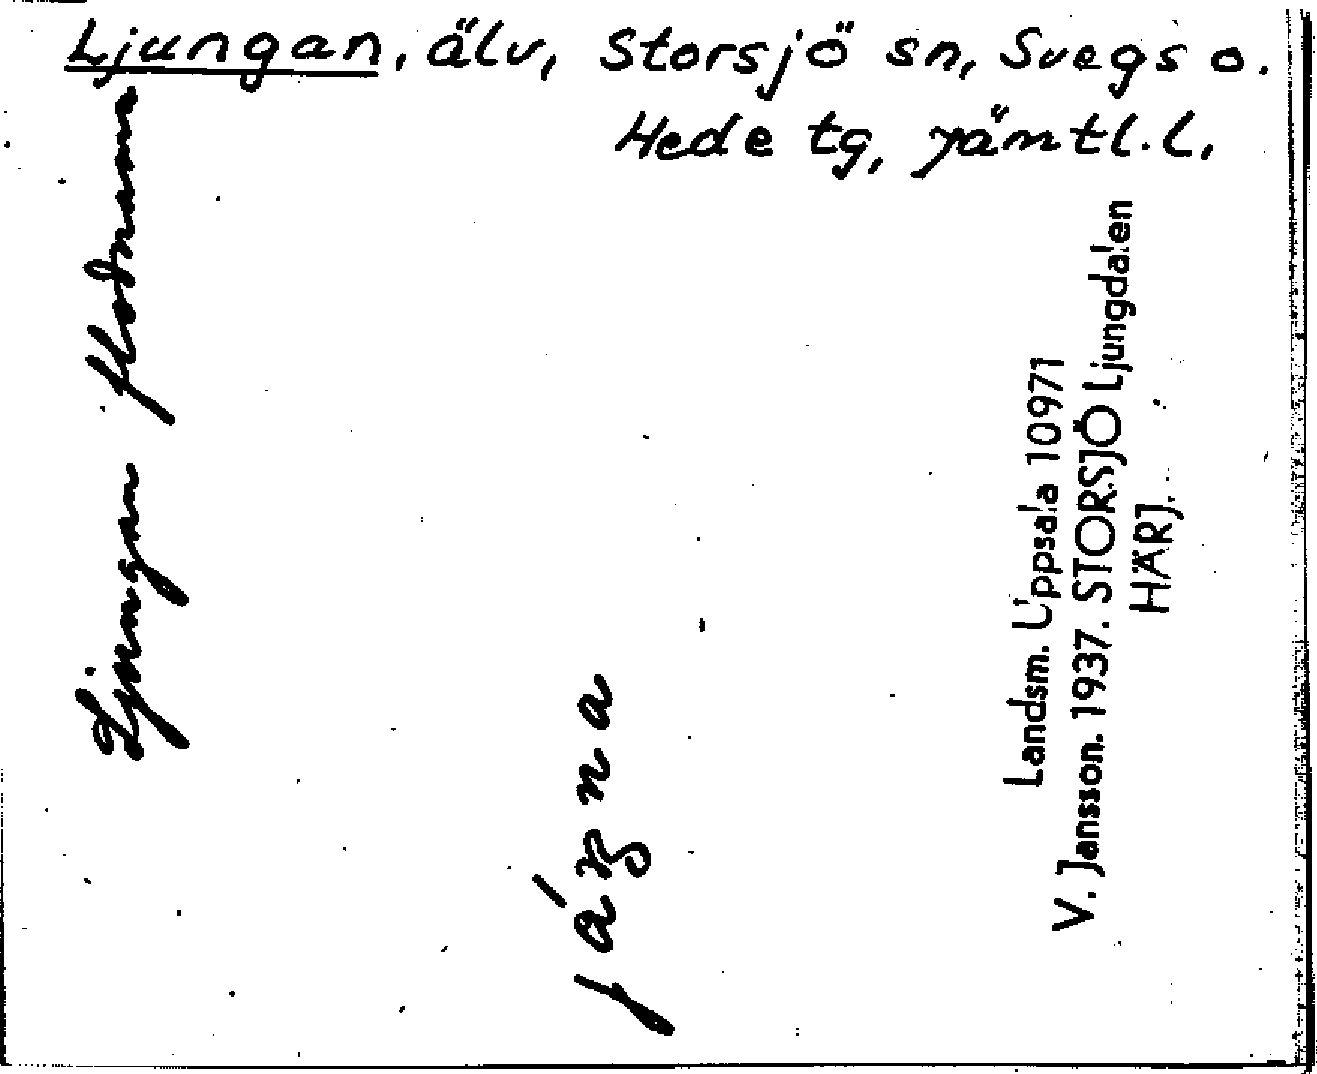 Ljungan, älv, Storsjö sn, Svegs o.
Hede tg, Jämtl. l.
Ljungan flodnamn
jáʒna
Landsm. Uppsala 10971
V. Jansson. 1937. STORSJÖ Ljungdalen
HÄRJ.